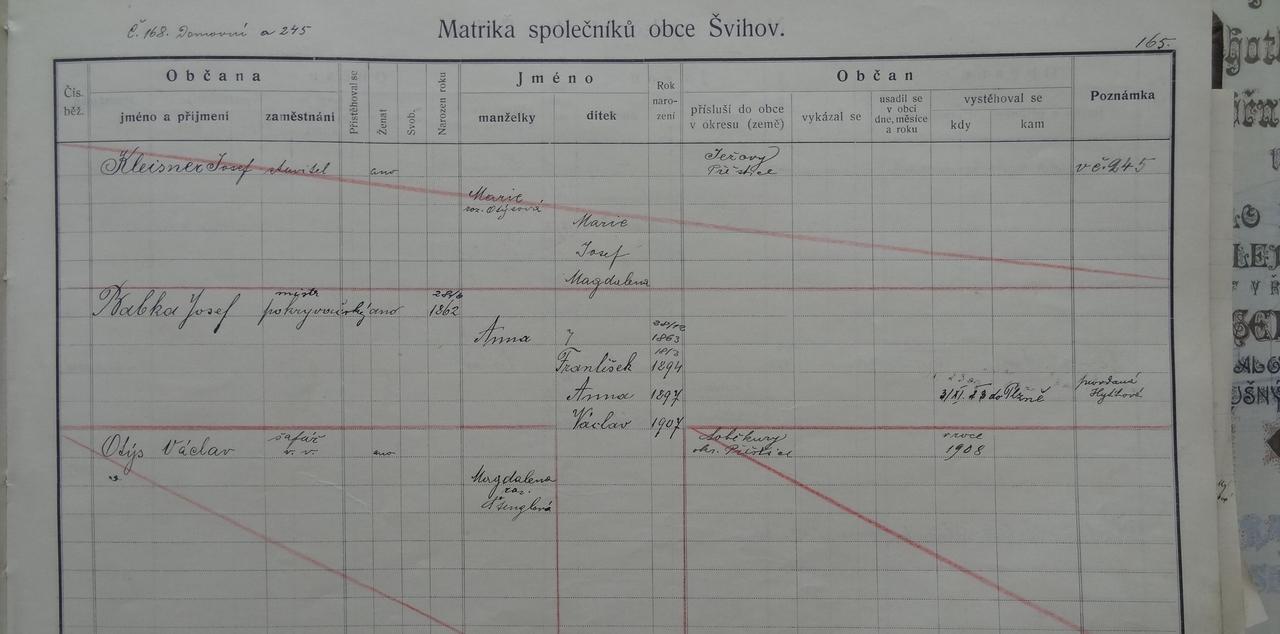 Č. 168. Domovní a 245
Matrika společníků obce Švihov.
165.
Čís. běž.
Občana
jméno a příjmení
zaměstnání
Přistěhoval se
Ženat
Svob.
Narozen roku
Jméno
manželky
dítek
Rok naro-zení
Občan
přísluší do obce v okresu (země)
vykázal se
usadil se v obci dne, měsíce a roku
vystěhoval se
kdy
kam
Poznámka
Kleisner Josef stavitel ano Ježovy v č. 245
Přeštice
Marie
roz. Otýsová
Marie
Josef
Magdalena
mistr 28/6
Babka Josef pokryvačský ano 1862
28/12
Anna 1863
18/3
František 1894
Anna 1897 3/XI. 23 do Plzně provdaná
Václav 1907
šafář Soběkury v roce
Otýs Václav v. v. ano okr. Přeštice 1908
Magdalena
roz.